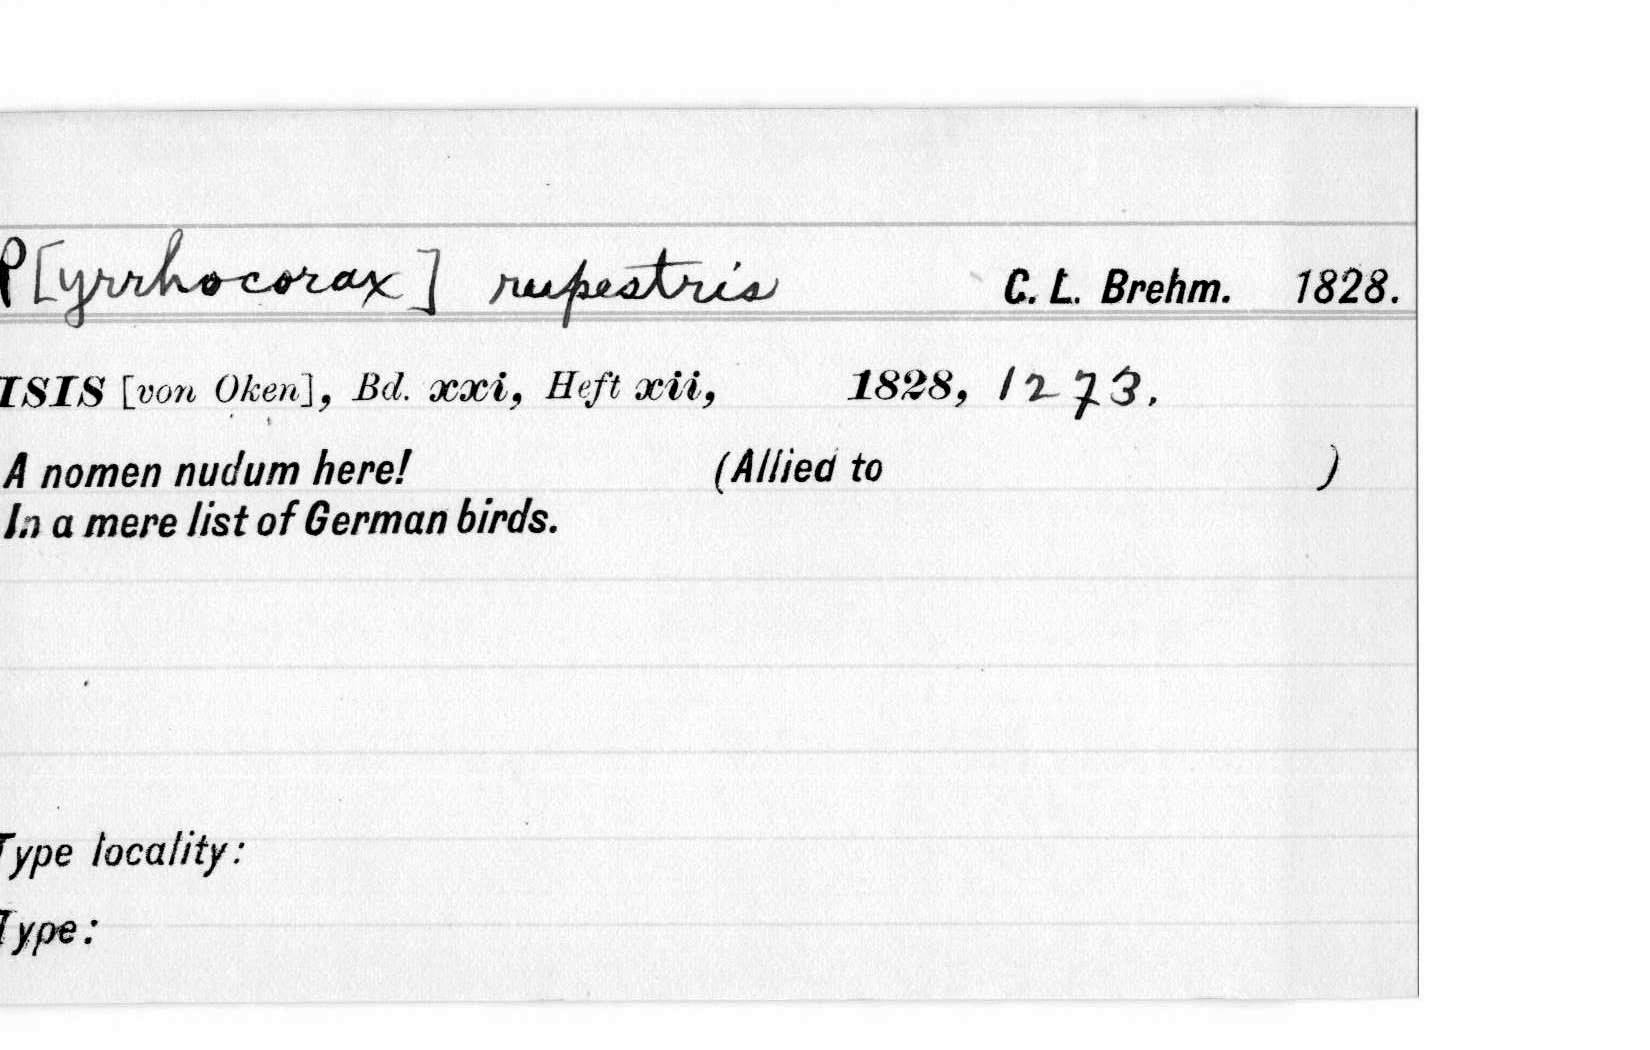 P[yrrhocorax] rupestris C. L. Brehm. 1828.
ISIS [von Oken], Bd. xxi, Heft xii, 1828, 1273.
A nomen nudum here! (Allied to )
In a mere list of German birds.
Type locality:
Type: